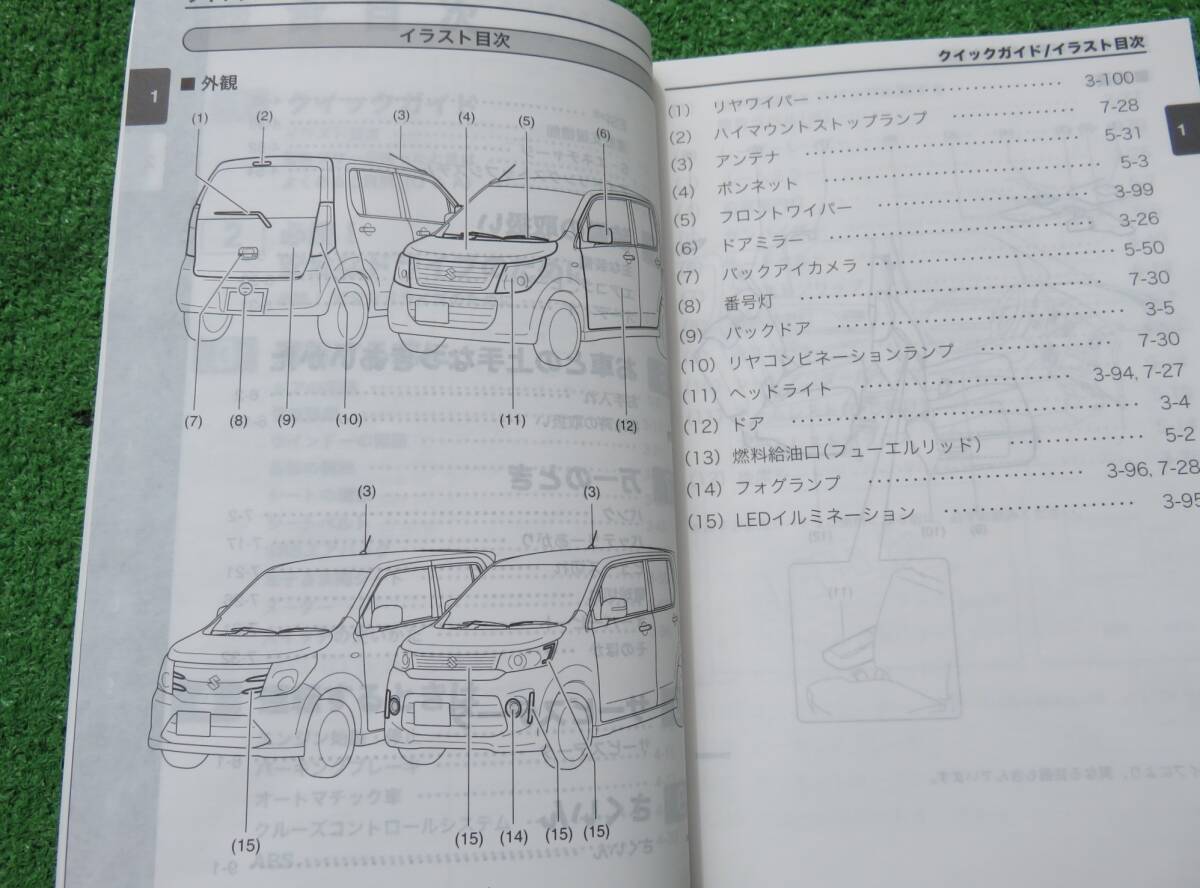 イラスト目次
■ 外観
1
(1)
(2)
(3)
(4)
(5)
(6)
(7)
(8)
(9)
(10)
(11)
(12)
(3)
(3)
(15)
(15)
(14)
(15)
(15)
クイックガイド/イラスト目次
1
(1) リヤワイパー 3-100
(2) ハイマウントストップランプ 7-28
(3) アンテナ 5-31
(4) ボンネット 5-3
(5) フロントワイパー 3-99
(6) ドアミラー 3-26
(7) バックアイカメラ 5-50
(8) 番号灯 7-30
(9) バックドア 3-5
(10) リヤコンビネーションランプ 7-30
(11) ヘッドライト 3-94, 7-27
(12) ドア 3-4
(13) 燃料給油口(フューエルリッド) 5-2
(14) フォグランプ 3-96, 7-28
(15) LEDイルミネーション 3-95
オートマチック車
クルーズコントロールシステム
ABS